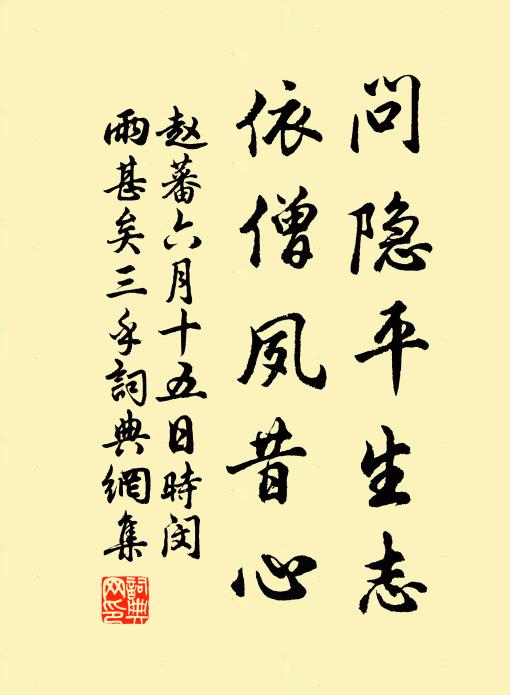 问隐平生志
依僧夙昔心
赵蕃六月十五日時闵
雨甚矣三手詞典網集
詞典
网印